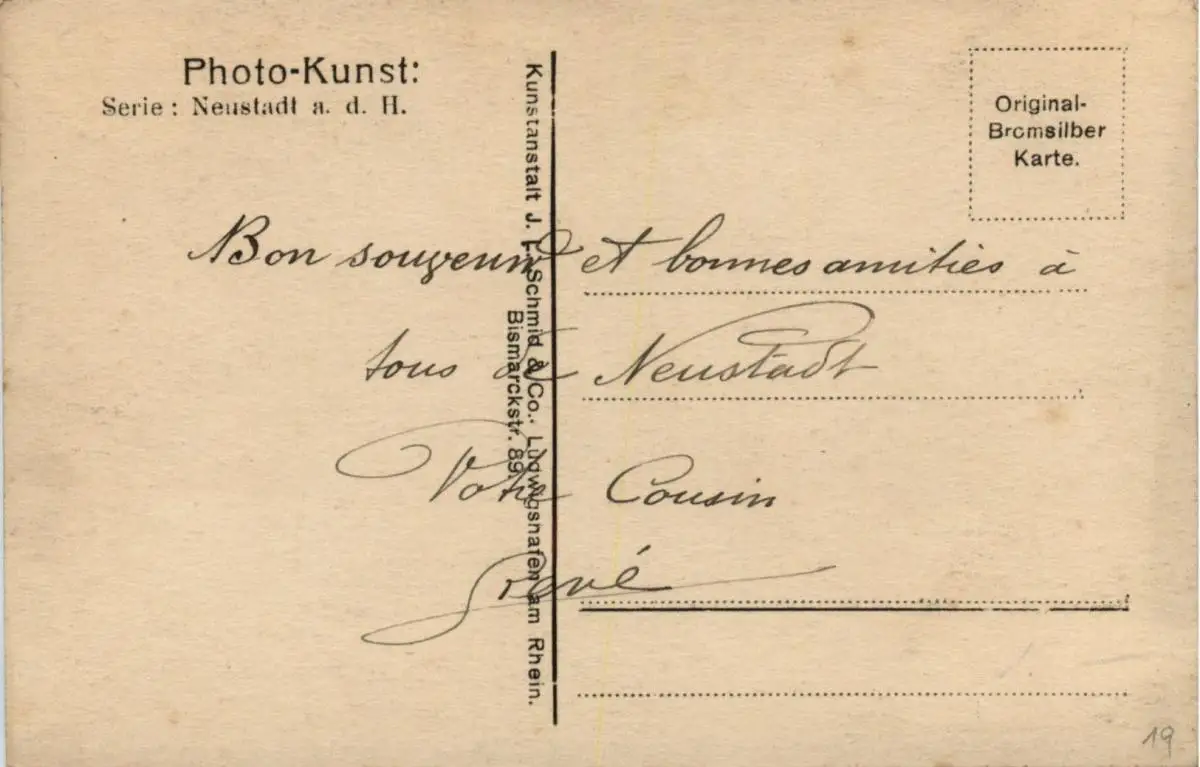 Photo-Kunst:
Serie : Neustadt a. d. H.
Original-
Bromsilber
Karte.
Kunstanstalt J. L. Schmid & Co., Ludwigshafen am Rhein.
Bismarckstr. 89.
Bon souvenir et bonnes amitiés à
tous de Neustadt
Votre Cousin
René
19